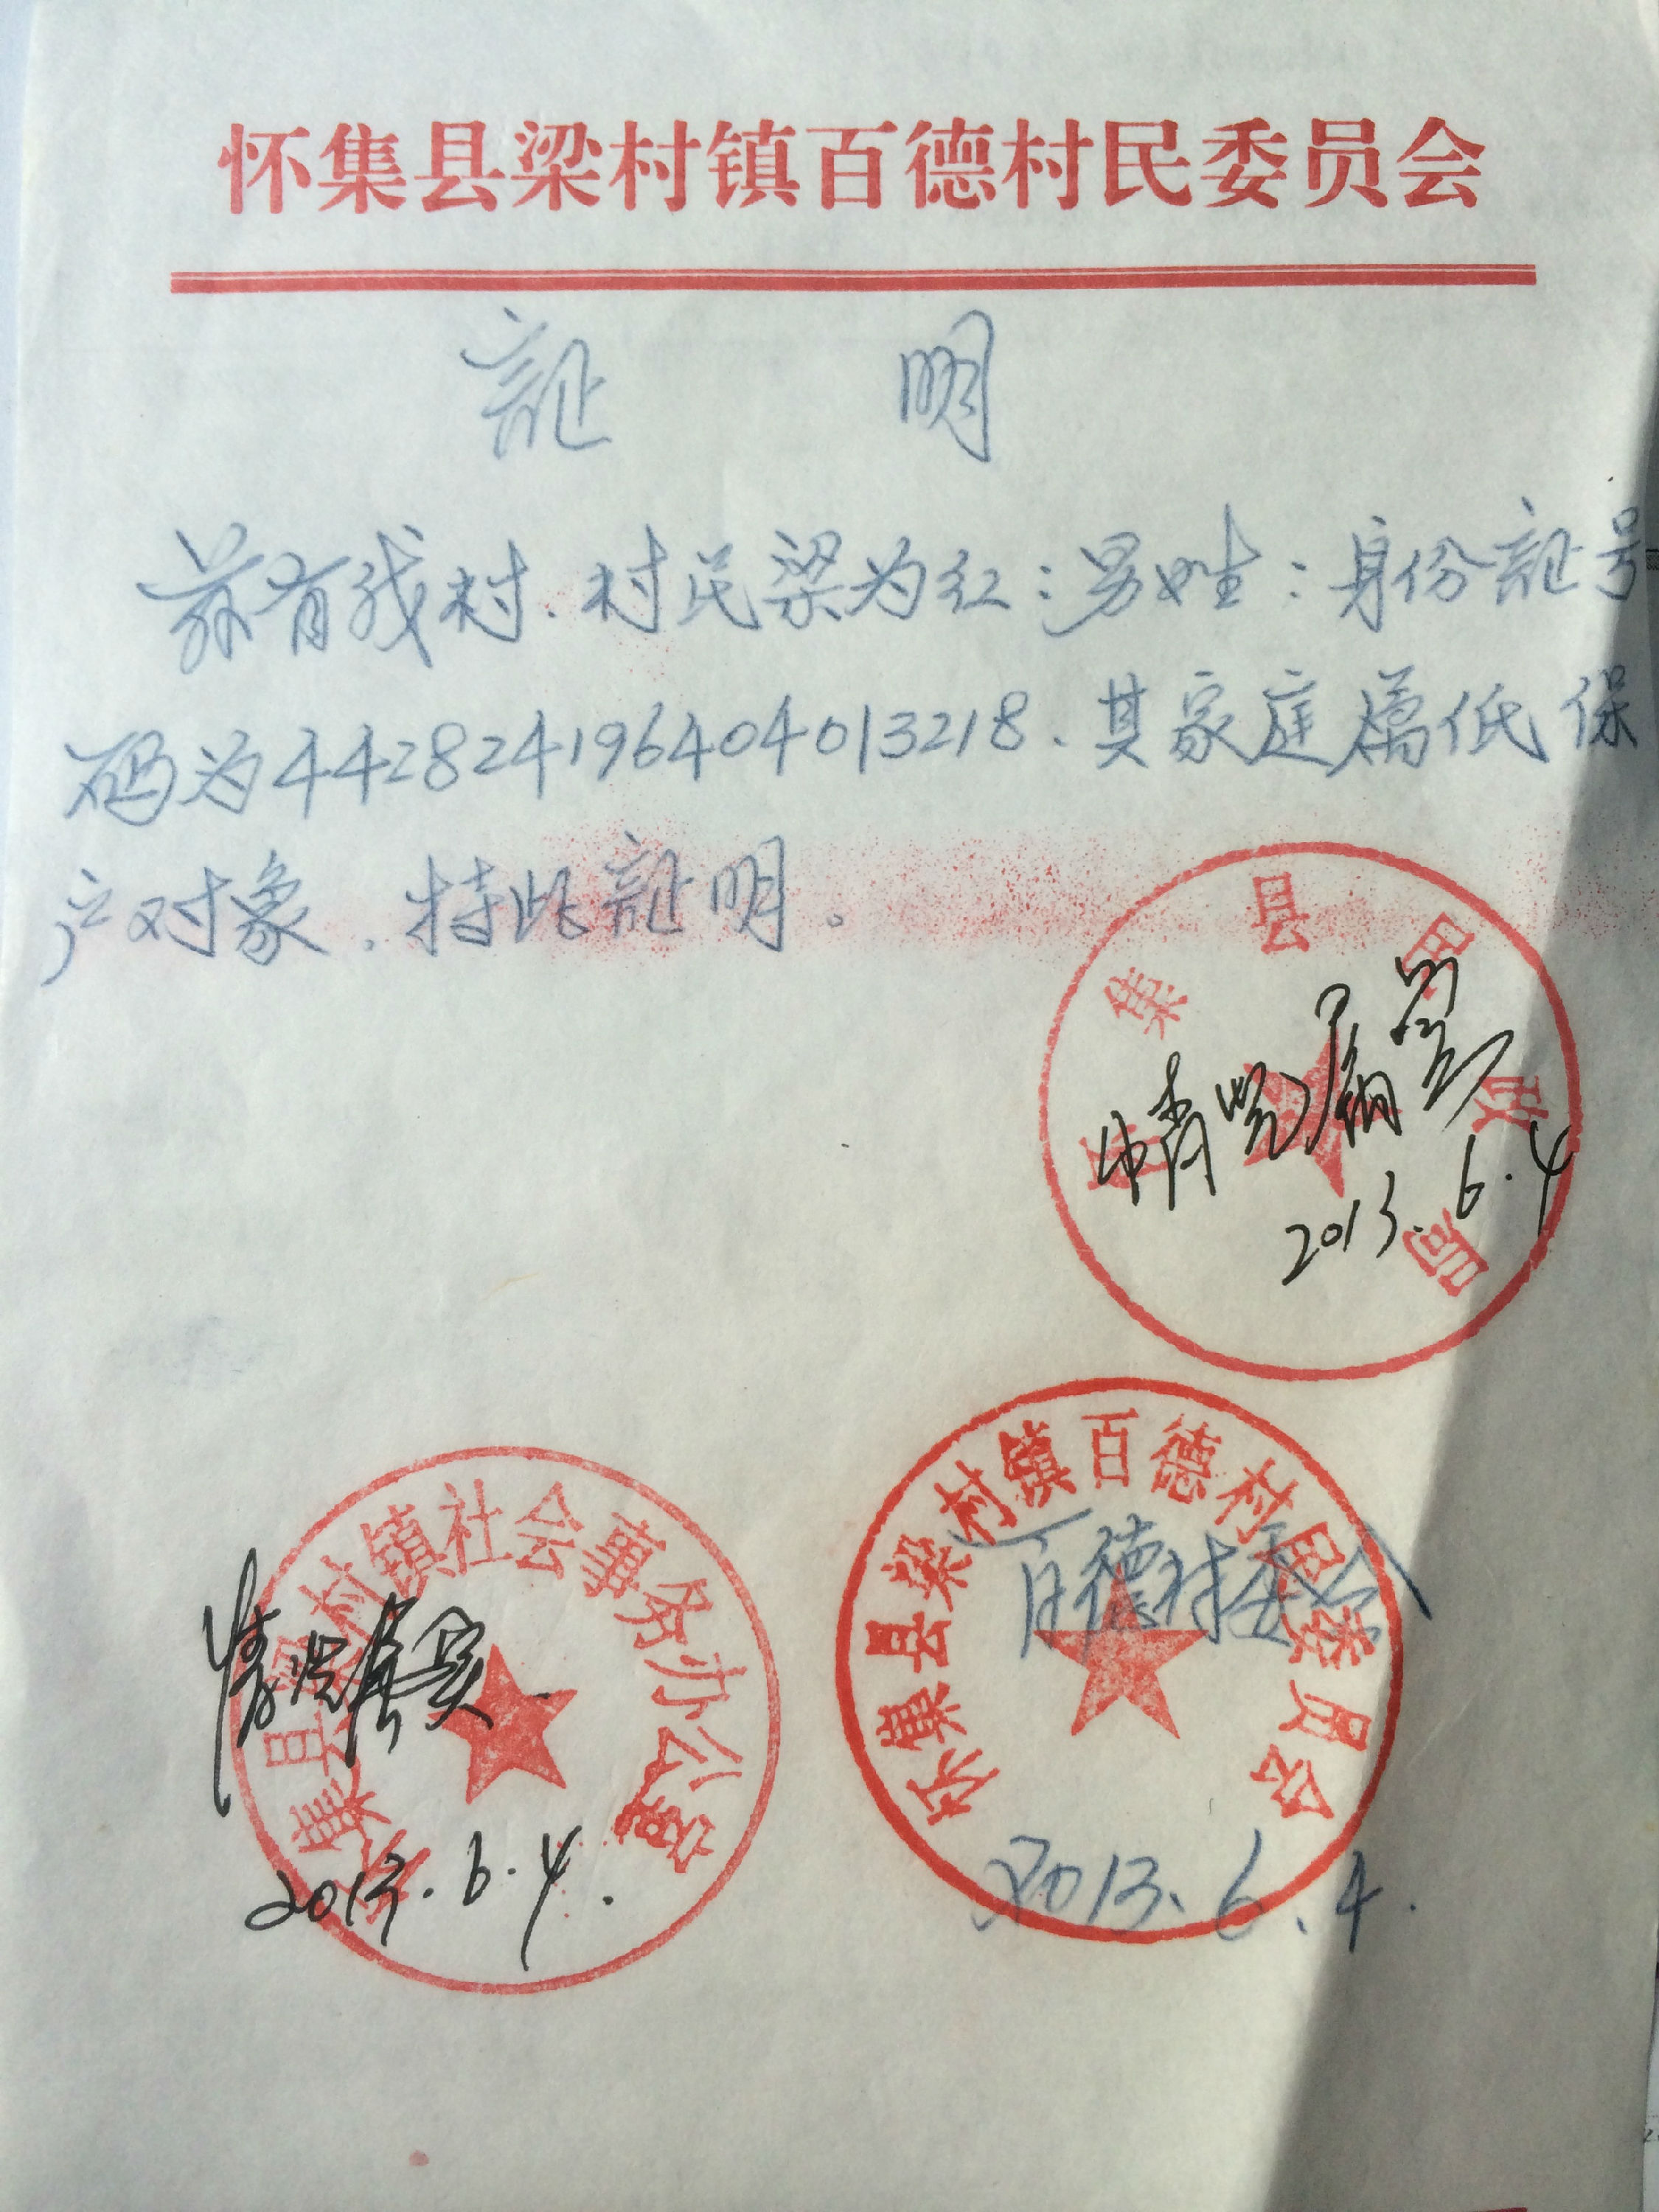 怀集县梁村镇百德村民委员会
証明
兹有我村、村民梁为红：男姓：身份証号
码为442824196404013218、其家庭属低保
户对象、特此証明。
怀集县民政局
情况属实
2013.6.4
怀集县梁村镇社会事务办公室
情况属实
2013.6.4.
怀集县梁村镇百德村民委员会
百德村委会
2013.6.4.